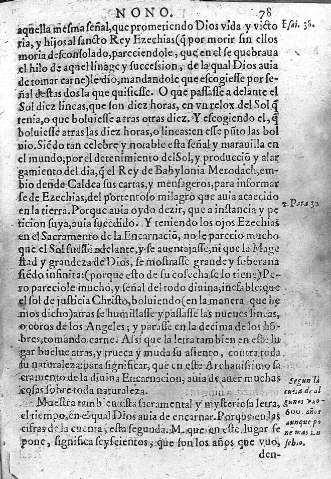 NONO. 78
aquella mesma señal, que prometiendo Dios vida y victo
ria, y hijos al sancto Rey Ezechias (q̃ por morir sin ellos
moria desconsolado, pareciendole, que en el se quebraua
el hilo de aquel linage y succession, de la qual Dios auia
de tomar carne) le dio, mandandole que escogiesse por se
ñal destas dos la que quisiesse. O que passasse adelante el
Sol diez lineas, que son diez horas, en vn relox del Sol q̃
tenia, o que boluiesse atras otras diez. Y escogiendo el, q̃
boluiesse atras las diez horas, o lineas: en esse pũto las bol
uio. Siẽdo tan celebre y notable esta señal y marauilla en
el mundo, por el detenimiento del Sol, y producciõ y alar
gamiento del dia, q̃ el Rey de Babylonia Merodach, em-
bio dende Caldea sus cartas, y mensageros, para informar
se de Ezechias, del portentoso milagro que auia acaecido
en la tierra. Porque auia oydo dezir, que a instancia y pe
ticion suya, auia succedido. Y teniendo los ojos Ezechias
en el Sacramento de la Encarnaciõ, no le parecio mucho
que el Sol fuesse adelante, y se auentajasse, ni que la Mage
stad y grandeza de Dios, se mostrasse grande y soberana
siẽdo infinita: (porque esto de su cosecha se lo tiene) Pe-
ro pareciole mucho, y señal del todo diuina, inefable: que
el sol de justicia Christo, boluiendo (en la manera que he
mos dicho) atras se humillasse y passasse las nueues lineas,
o coros de los Angeles; y parasse en la decima de los hõ-
bres, tomando carne. Assi que la letra tambien en este lu
gar buelue atras, y trueca y muda su asiento, contra toda
su naturaleza: para significar, que en este Archanissimo sa
cramento de la diuina Encarnacion, auia de auer muchas
cosas sobre toda naturaleza.
Muestra tambien esta sacramental y mysteriosa letra,
el tiempo, en el qual Dios auia de encarnar. Porque en las
cifras de la cuenta, esta segunda M. que en este lugar se
pone, significa seyscientos, que son los años que vuo,
den-
Esai. 38.
2. Para. 32
Segun la
cuẽta de al
gunos vuo
600. años
aunque po
ne mas Eu
sebio.